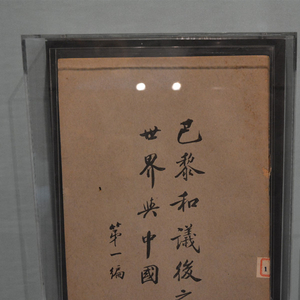 巴黎和議後之
世界與中國
第一編
1